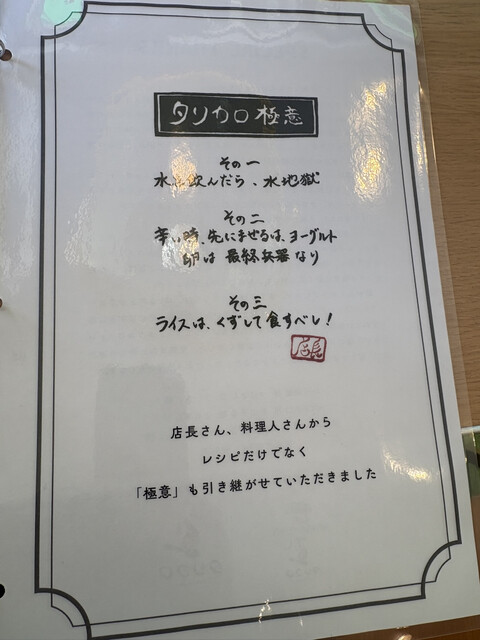 タリカロ極意
その一
水を飲んだら、水地獄
その二
辛い時、先にまぜるは、ヨーグルト
卵は最終兵器なり
その三
ライスは、くずして食すべし！
店長
店長さん、料理人さんから
レシピだけでなく
「極意」も引き継がせていただきました